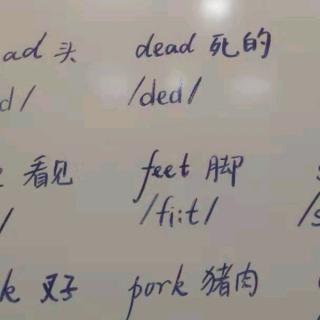 ad 头 dead 死的
d/ /ded/
看见 feet 脚
/ /fi:t/ /s
k 叉子 pork 猪肉